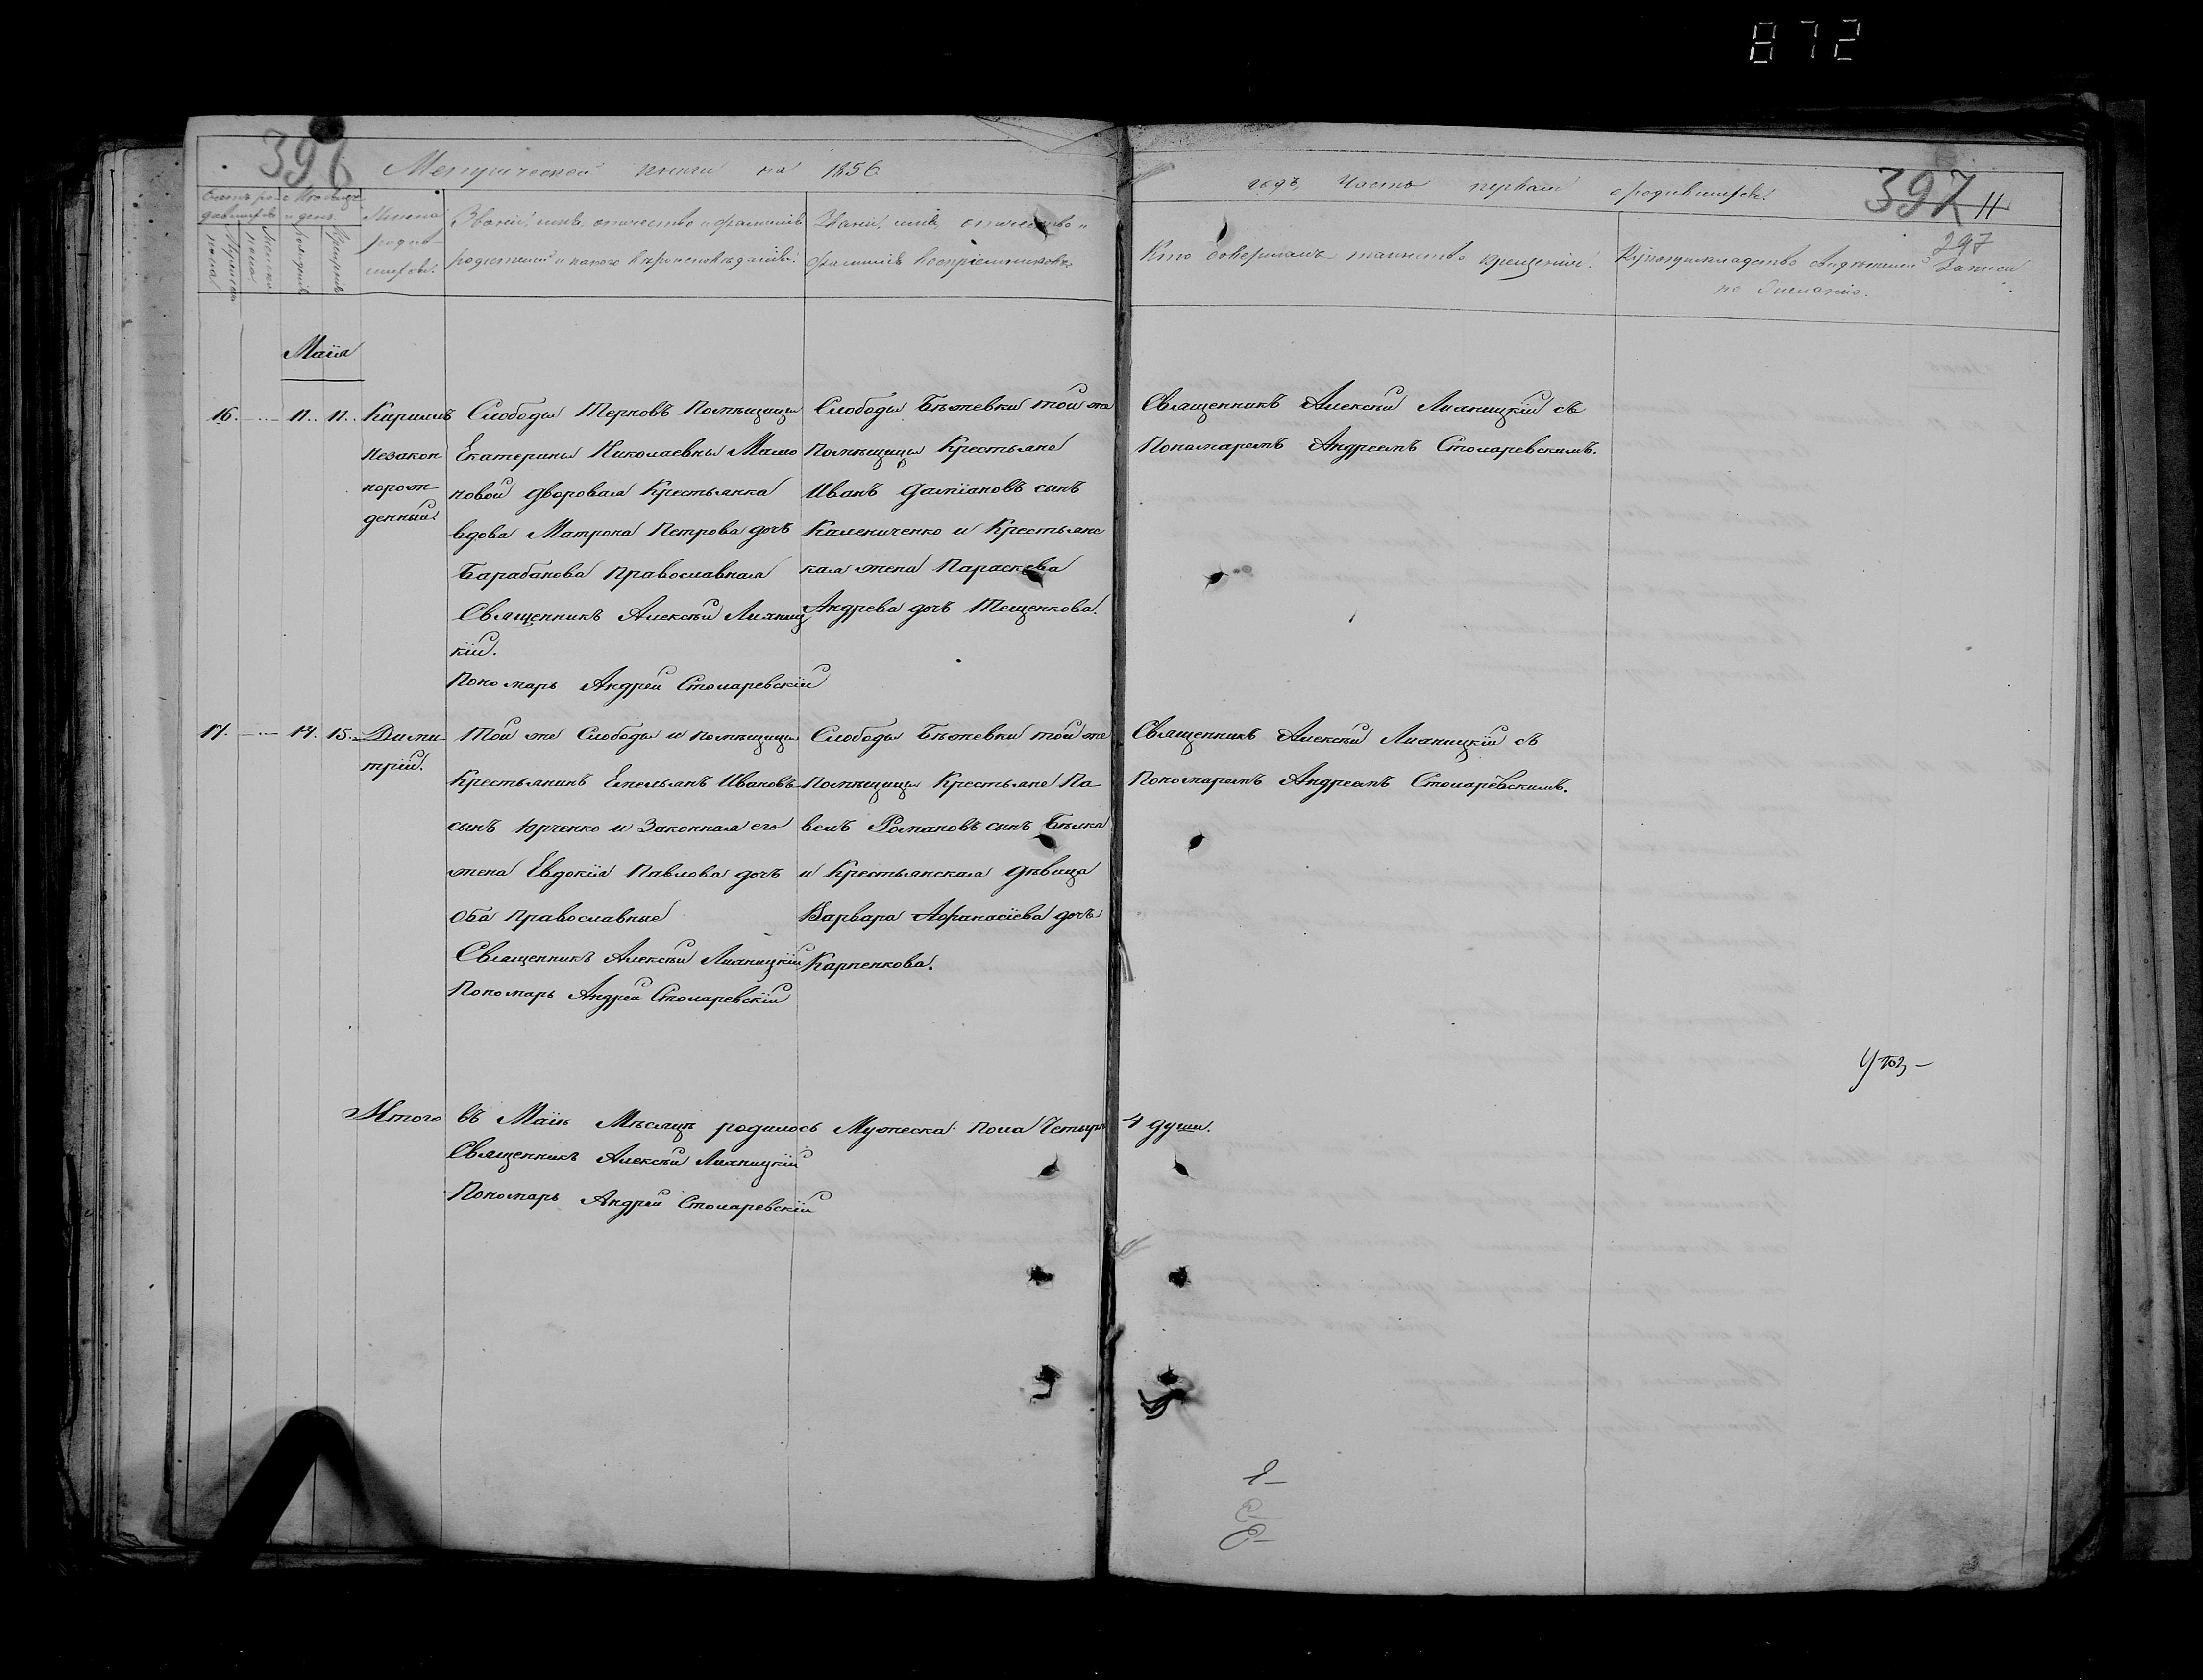 872
396
Метрической книги на 1856
годъ, Часть первая о родившихся.
397 11
297
Счетъ ро- Мѣсяцъ
дившихся и день.
Мужеска пола
Женска пола
рожденія
крещенія
Имена
родив-
шихся.
Званіе, имя, отечество и фамилія
родителей и какого вѣроисповѣданія.
Званіе, имя, отечество и
фамилія воспріемниковъ.
Кто совершалъ таинство крещенія.
Рукоприкладство свидѣтелей записи
по желанію.
Маія
16. 11. 11. Кириллъ
незакон
норож
денный
Слободы Терновъ Помѣщицы
Екатерины Николаевны
новой дворовая Крестьянка
вдова Матрона Петрова дочь
Барабанова Православная
Священникъ Алексѣй Лихниц
кій.
Пономарь Андрей Столаревскій
Слободы Бѣжевки той же
Помѣщицы Крестьяне
Иванъ Даміановъ сынъ
Калениченко и Крестьянс
кая жена Параскева
Андрева дочь Тещенкова.
Священникъ Алексѣй Лихницкій съ
Пономаремъ Андреемъ Столаревскимъ.
17. 14. 15. Дими
трій.
Той же Слободы и помѣщицы
Крестьянинъ Емельянъ Ивановъ
сынъ Юрченко и Законная его
жена Евдокія Павлова дочь
Оба Православные
Священникъ Алексѣй Лихницкій
Пономарь Андрей Столаревскій
Слободы Бѣжевки той же
Помѣщицы Крестьяне Па
велъ Романовъ сынъ Бѣлка
и Крестьянская дѣвица
Варвара Афанасіева дочь
Карпенкова.
Священникъ Алексѣй Лихницкій съ
Пономаремъ Андреемъ Столаревскимъ.
Итого въ Маіѣ Мѣсяцѣ родилось Мужеска Пола Четыре 4 души.
Священникъ Алексѣй Лихницкій
Пономарь Андрей Столаревскій